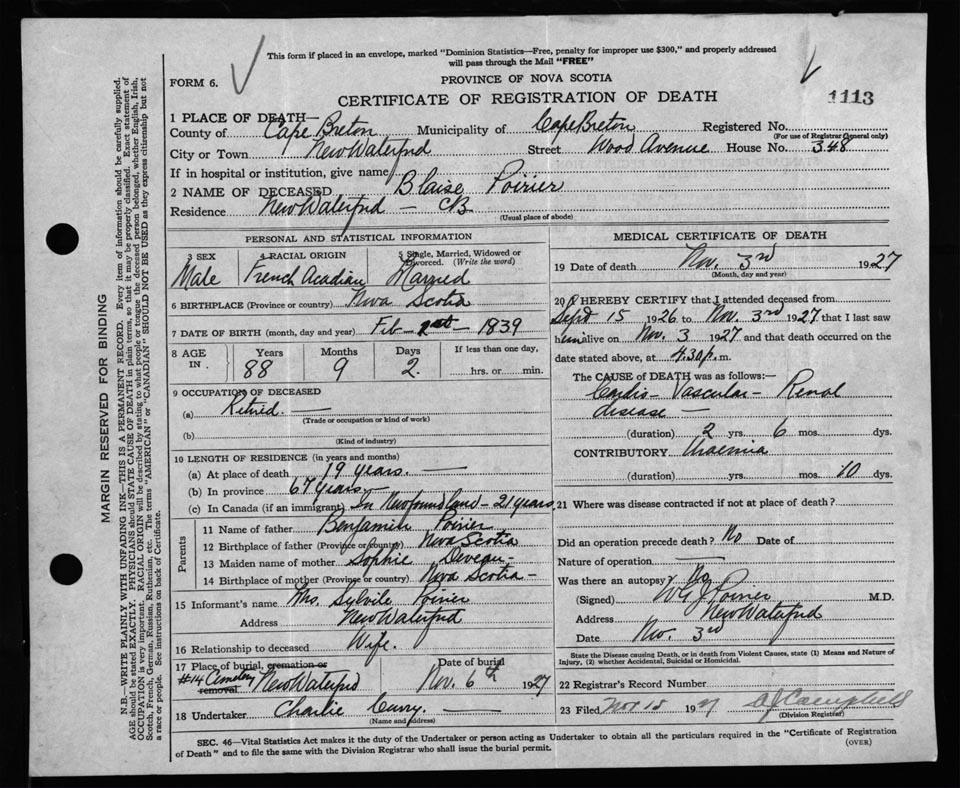 This form if placed in an envelope, marked "Dominion Statistics—Free, penalty for improper use $300," and properly addressed
will pass through the Mail "FREE"
FORM 6.
PROVINCE OF NOVA SCOTIA
CERTIFICATE OF REGISTRATION OF DEATH
1113
1 PLACE OF DEATH—
County of Cape Breton Municipality of Cape Breton Registered No.
(For use of Registrar General only)
City or Town New Waterford Street Wood Avenue House No. 348
If in hospital or institution, give name
2 NAME OF DECEASED Blaise Poirier
Residence New Waterford — CB
(Usual place of abode)
PERSONAL AND STATISTICAL INFORMATION
3 SEX 4 RACIAL ORIGIN 5 Single, Married, Widowed or Divorced. (Write the word)
Male French Acadian Married
6 BIRTHPLACE (Province or country) Nova Scotia
7 DATE OF BIRTH (month, day and year) Feb 1st 1839
8 AGE IN Years Months Days If less than one day,
88 9 2. hrs. or min.
9 OCCUPATION OF DECEASED
(a) Retired. —
(Trade or occupation or kind of work)
(b)
(Kind of industry)
10 LENGTH OF RESIDENCE (in years and months)
(a) At place of death 19 years. —
(b) In province 67 years —
(c) In Canada (if an immigrant) In Newfoundland — 21 years
Parents
11 Name of father Benjamin Poirier
12 Birthplace of father (Province or country) Nova Scotia
13 Maiden name of mother Sophie Deveau -
14 Birthplace of mother (Province or country) Nova Scotia -
15 Informant's name Mrs. Sylvile Poirier
Address New Waterford
16 Relationship to deceased Wife.
17 Place of burial, cremation or removal Date of burial
#14 Cemetery New Waterford Nov. 6th 1927
18 Undertaker Charlie Curry. —
(Name and address)
MEDICAL CERTIFICATE OF DEATH
19 Date of death Nov. 3rd 1927
(Month, day and year)
20 I HEREBY CERTIFY that I attended deceased from
Sept 15 1926 to Nov. 3rd 1927 that I last saw
him alive on Nov. 3 1927 and that death occurred on the
date stated above, at 4.30 p. m.
The CAUSE OF DEATH was as follows:—
Cardio - Vascular - Renal
disease —
(duration) 2 yrs. 6 mos. dys.
CONTRIBUTORY Uraemia
(duration) yrs. mos. 10 dys.
21 Where was disease contracted if not at place of death?
Did an operation precede death? No Date of
Nature of operation —
Was there an autopsy? No
(Signed) W G J Poirier M.D.
Address New Waterford
Date Nov. 3rd
State the Disease causing Death, or in death from Violent Causes, state (1) Means and Nature of
Injury, (2) whether Accidental, Suicidal or Homicidal.
22 Registrar's Record Number
23 Filed Nov 15 1927 Campbell
(Division Registrar)
SEC. 46—Vital Statistics Act makes it the duty of the Undertaker or person acting as Undertaker to obtain all the particulars required in the "Certificate of Registration
of Death" and to file the same with the Division Registrar who shall issue the burial permit. (OVER)
MARGIN RESERVED FOR BINDING
N.B.—WRITE PLAINLY WITH UNFADING INK—THIS IS A PERMANENT RECORD. Every item of information should be carefully supplied.
AGE should be stated EXACTLY. PHYSICIANS should STATE CAUSE OF DEATH in plain terms, so that it may be properly classified. Exact statement of
OCCUPATION is very important. RACIAL ORIGIN will be described by stating to what people or tongue the deceased person belonged, whether English, Irish,
Scotch, French, German, Russian, Ruthenian, etc. The terms "AMERICAN" or "CANADIAN" SHOULD NOT BE USED as they express citizenship but not
a race or people. See instructions on back of Certificate.